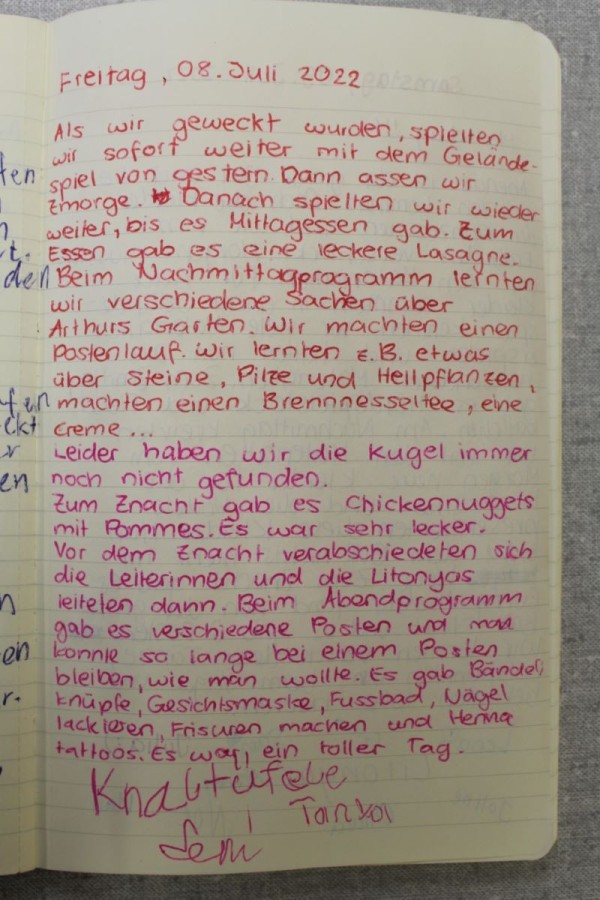 Freitag, 08. Juli 2022
Als wir geweckt wurden, spielten
wir sofort weiter mit dem Gelände-
spiel von gestern. Dann assen wir
Zmorge. Danach spielten wir wieder
weiter, bis es Mittagessen gab. Zum
Essen gab es eine leckere Lasagne.
Beim Nachmittagprogramm lernten
wir verschiedene Sachen über
Arthurs Garten. Wir machten einen
Postenlauf. Wir lernten z.B. etwas
über Steine, Pilze und Heilpflanzen,
machten einen Brennnesseltee, eine
creme...
Leider haben wir die Kugel immer
noch nicht gefunden.
Zum Znacht gab es Chickennuggets
mit Pommes. Es war sehr lecker.
Vor dem Znacht verabschiedeten sich
die Leiterinnen und die Litonyas
leiteten dann. Beim Abendprogramm
gab es verschiedene Posten und man
konnte so lange bei einem Posten
bleiben, wie man wollte. Es gab Bändel,
knüpfe, Gesichtsmaske, Fussbad, Nägel
lackieren, Frisuren machen und Henna
tattoos. Es war, ein toller Tag.
Tanya